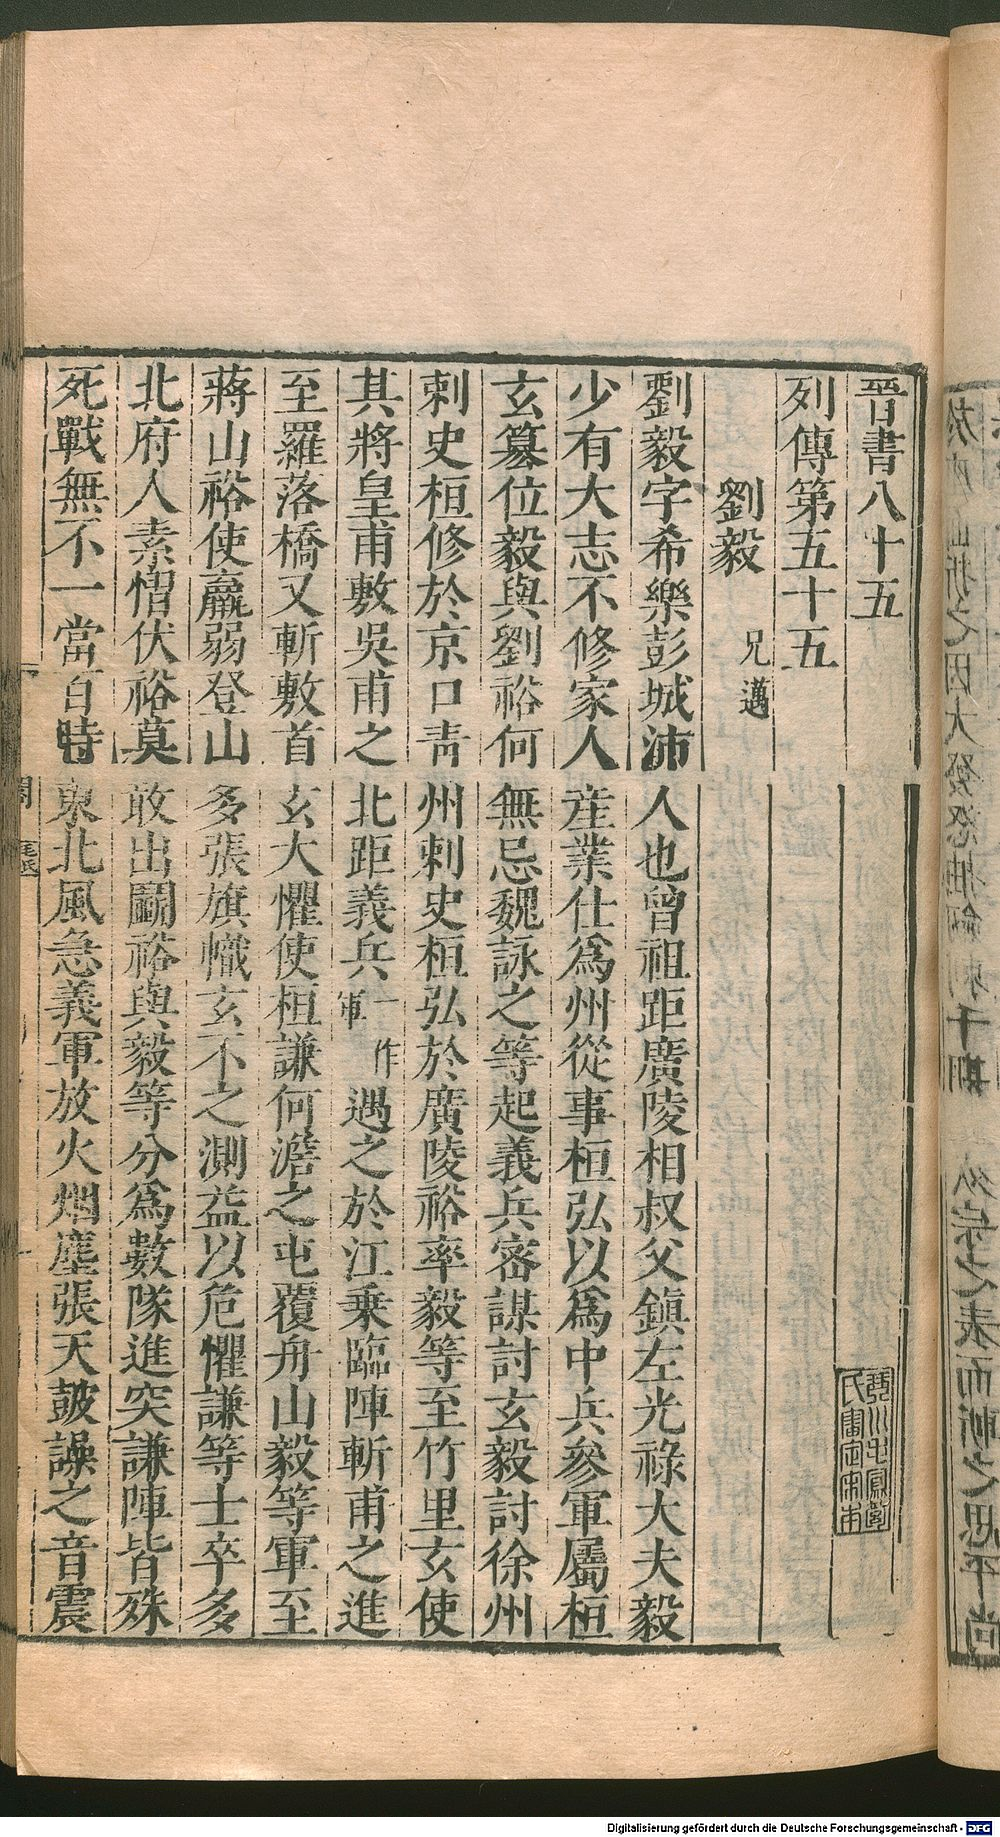 晉書八十五
列傳第五十五
劉毅 兄邁
劉毅字希樂彭城沛人也曾祖距廣陵相叔父鎮左光祿大夫毅
少有大志不修家人産業仕爲州從事桓弘以爲中兵參軍屬桓
玄篡位毅與劉裕何無忌魏詠之等起義兵密謀討玄毅討徐州
刺史桓修於京口青州刺史桓弘於廣陵裕率毅等至竹里玄使
其將皇甫敷吳甫之北距義兵一作軍遇之於江乗臨陣斬甫之進
至羅落橋又斬敷首玄大懼使桓謙何澹之屯覆舟山毅等軍至
蔣山裕使羸弱登山多張旗幟玄不之測益以危懼謙等士卒多
北府人素慴伏裕莫敢出鬭裕與毅等分爲數隊進突謙陣皆殊
死戰無不一當百時東北風急義軍放火烟塵張天鼓譟之音震
Digitalisierung gefördert durch die Deutsche Forschungsgemeinschaft - DFG